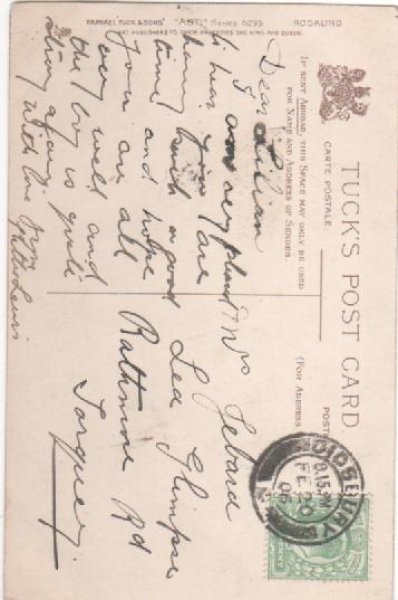 TUCK'S POST CARD.
CARTE POSTALE.
IF SENT ABROAD, THIS SPACE MAY ONLY BE USED
FOR NAME AND ADDRESS OF SENDER.
(FOR ADDRESS
RAPHAEL TUCK & SONS' "ASTI" Series 5295 ROSALIND
ART PUBLISHERS TO THEIR MAJESTIES THE KING AND QUEEN.
Dear Lilian
I am very pleased
to hear you are
having such a good
time and hope
you are all
very well and
the boy is quite
strong again.
With love from
Lewis
Mrs
Lea Glimpse
Rathmore Rd
Torquay
DIDSBURY
8.15 PM
FE 20
06